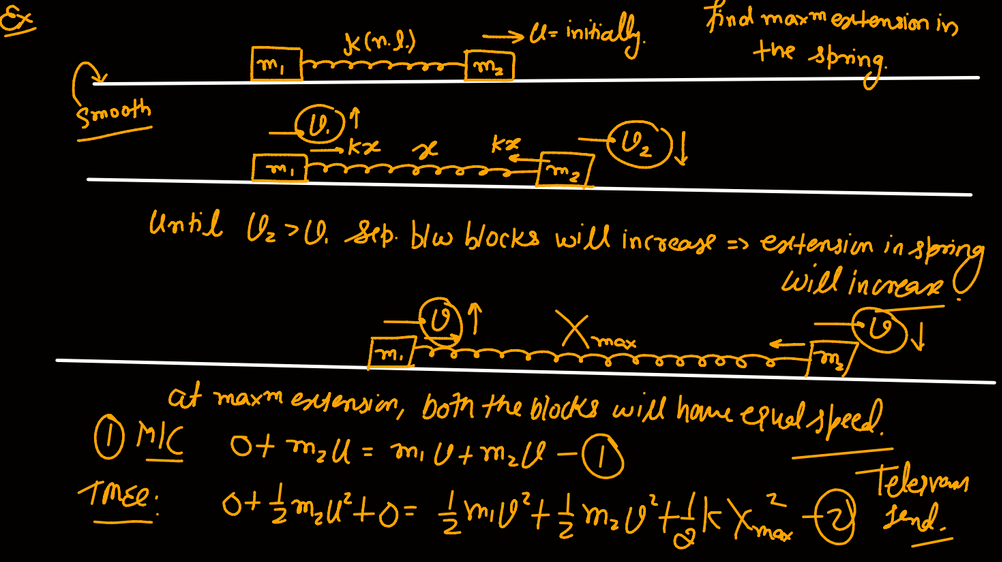 Ex
k(n.l.)
→ u = initially.
find maxm extension in
the spring.
m₁ m₂
Smooth
v₁ ↑ v₂ ↓
kx x kx
m₁ m₂
Until v₂ > v₁ sep. b/w blocks will increase => extension in spring
will increase.
v ↑ X max v ↓
m₁ m₂
at maxm extension, both the blocks will have equal speed.
① M/C 0 + m₂u = m₁v + m₂v - ①
TMEC: 0 + ½m₂u² + 0 = ½m₁v² + ½m₂v² + ½kX²max - ②
Telegram
send.